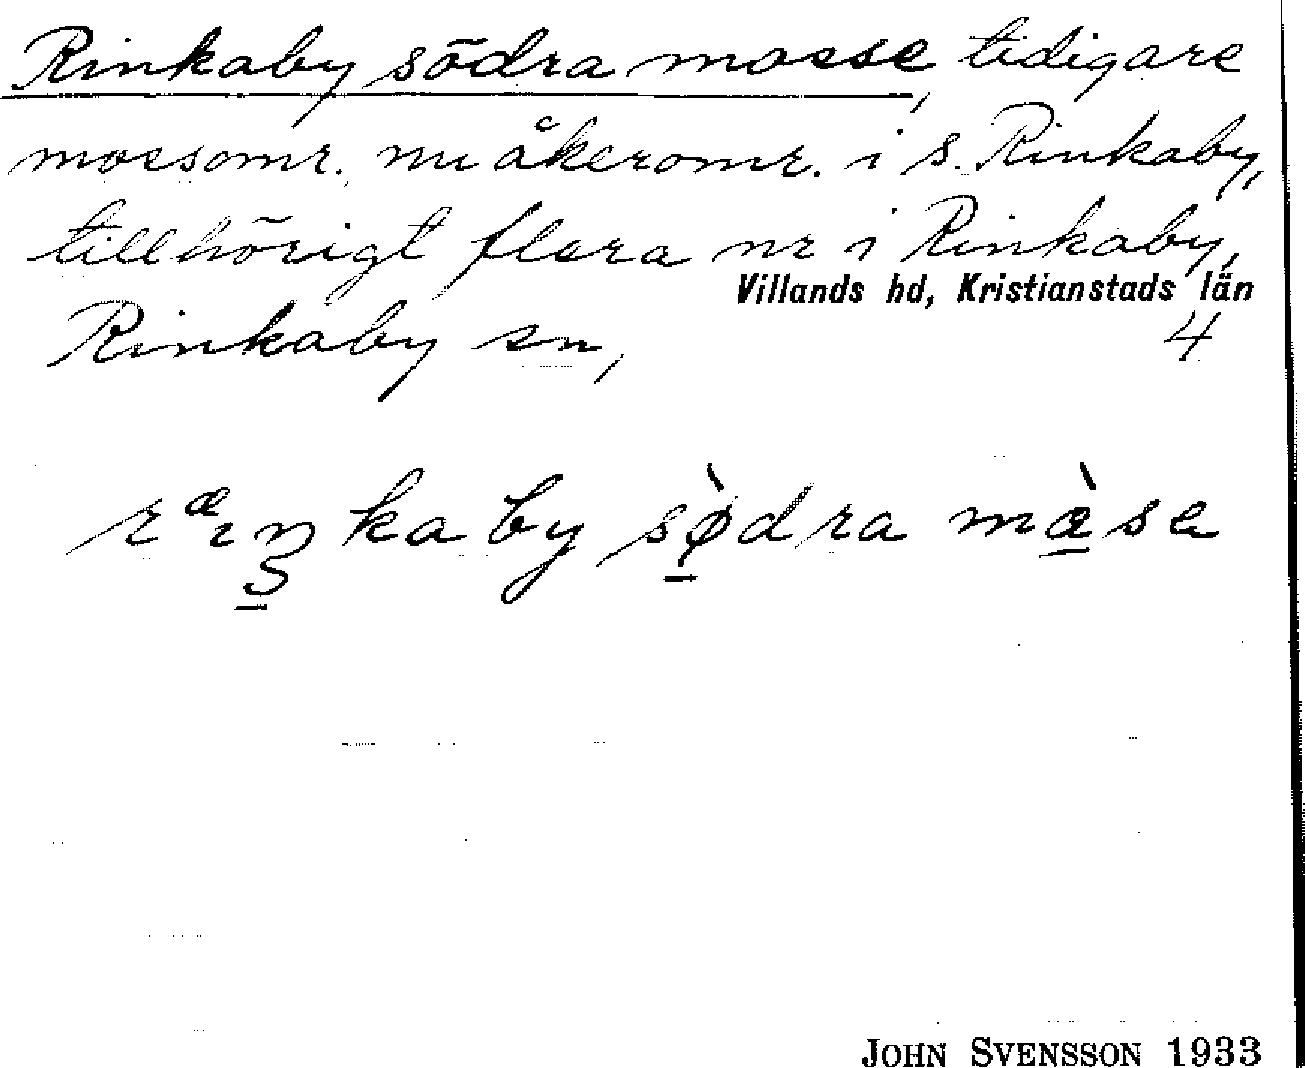 Rinkaby södra mosse, tidigare
mossomr. nu åkeromr. i s. Rinkaby,
tillhörigt flera nr i Rinkaby,
Villands hd, Kristianstads län
Rinkaby sn, 4
södra
JOHN SVENSSON 1933